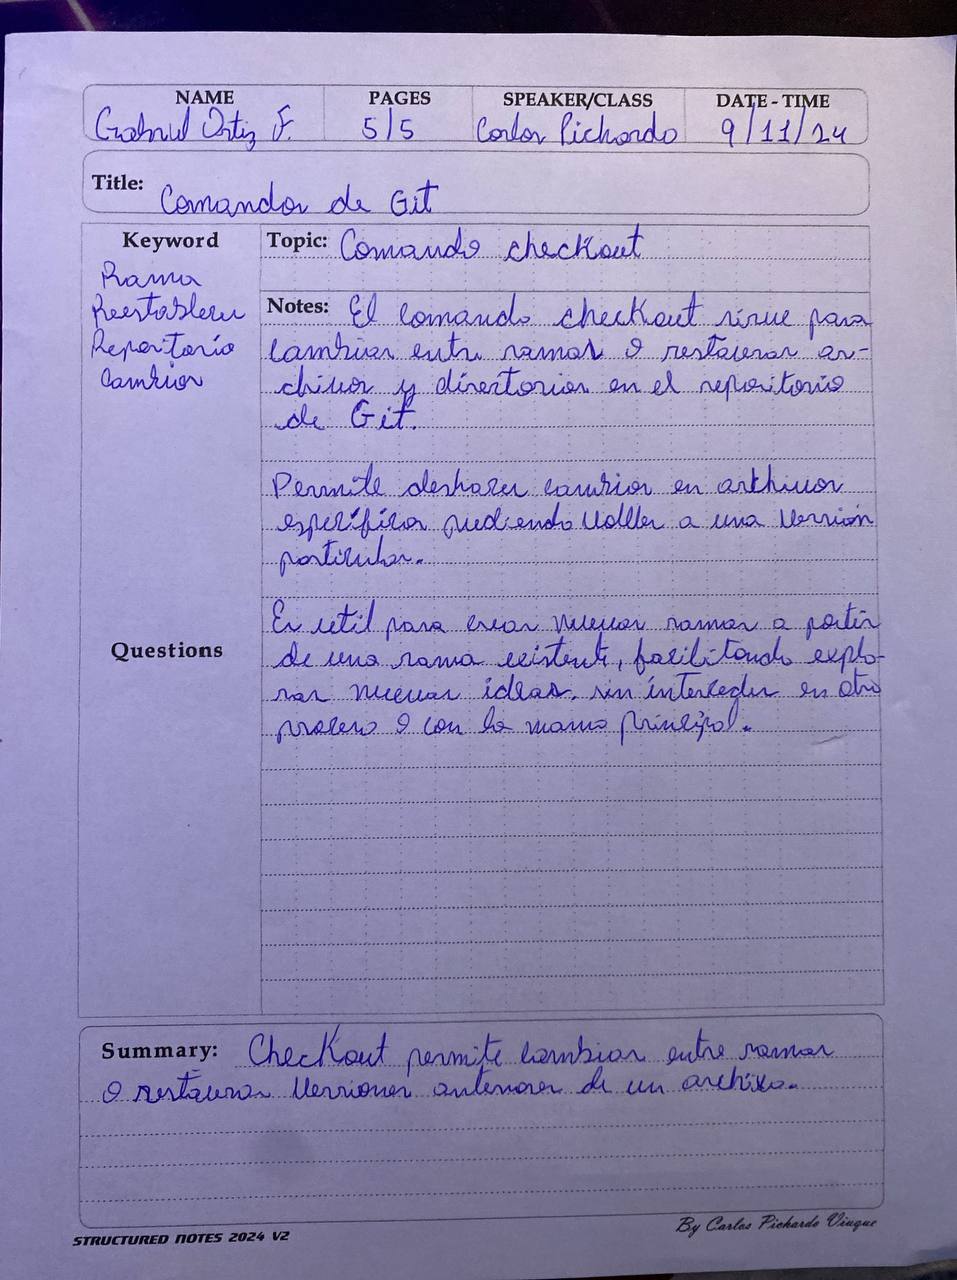 NAME PAGES SPEAKER/CLASS DATE-TIME
Gabriel Ortiz F. 5/5 Carlos Pichardo 9/11/24
Title: Comandos de Git
Keyword
Rama
Reestablecer
Repositorio
Cambios
Questions
Topic: Comando checkout
Notes: El comando checkout sirve para
cambiar entre ramas o restaurar ar-
chivos y directorios en el repositorio
de Git.
Permite deshacer cambios en archivos
específicos pudiendo volver a una versión
particular.
Es util para crear nuevas ramas a partir
de una rama existente, facilitando explo-
rar nuevas ideas. sin interceder en otro
proceso o con la mama principal.
Summary: Checkout permite cambiar entre ramas
o restaurar versiones anteriores de un archivo.
STRUCTURED NOTES 2024 V2
By Carlos Pichardo Viuque